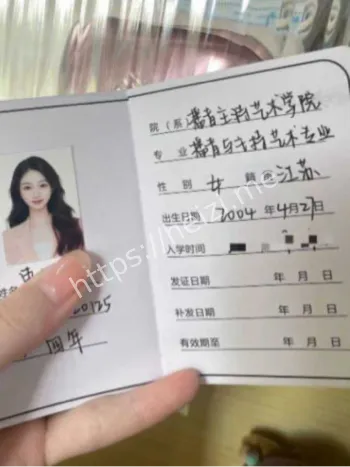 院(系) 播音主持艺术学院
专业 播音与主持艺术专业
性别 女 籍贯 江苏
出生日期 2004年4月27
入学时间
发证日期 年 月 日
补发日期 年 月 日
有效期至 年 月 日
姓名
20125
四年
https://heizi.me